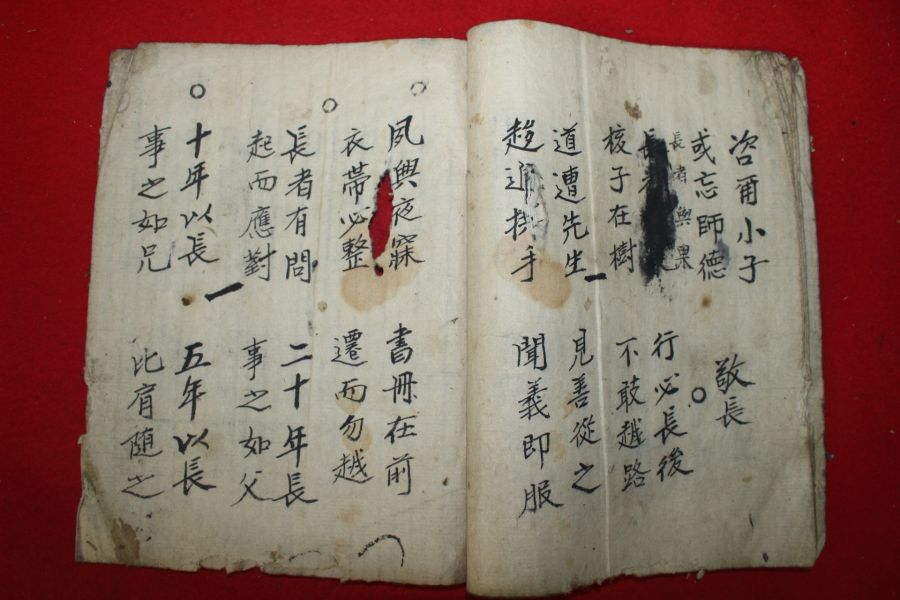 咨爾小子
或忘師德
敬長
長者與果
核子在樹
行必長後
不敢越路
道遭先生
趍進拱手
見善從之
聞義即服
夙興夜寐
衣帶必整
書冊在前
遷而勿越
長者有問
起而應對
二十年長
事之如父
十年以長
事之如兄
五年以長
比肩隨之